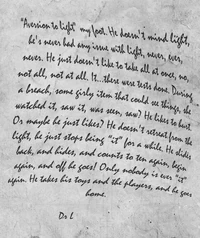 "Aversion to light" my foot. He doesn't mind light,
he's never had any issue with light, never, ever,
never. He just doesn't like to take all at once, no,
not all, not at all. It...there were tests done. During
a breach, some girly item that could see things, she
watched it, saw it, was seen, saw) He likes to hurt.
Or maybe he just likes? He doesn't retreat from the
light, he just stops being "it" for a while. He slides
back, and hides, and counts to ten, again begin
again, and off he goes! Only nobody is ever "it"
again. He takes his toys and the players, and he goes
home.
Dr L